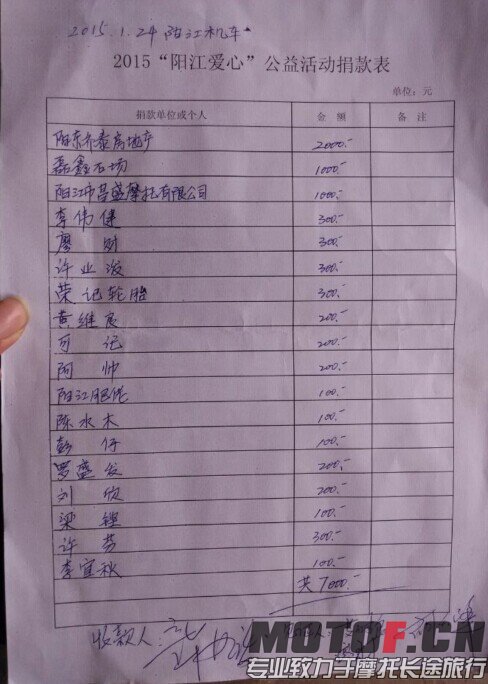 2015.1.24 阳江机车
2015“阳江爱心”公益活动捐款表
单位：元
捐款单位或个人 金 额 备 注
阳东东泰房地产 2000.-
磊鑫石场 1000.-
阳江市昌盛摩托有限公司 1000.-
李伟健 300.-
廖 财 300.-
许业浚 300.-
荣记轮胎 300.-
黄继良 200.-
可 记 200.-
阿 帅 200.-
阳江肥佬 100.-
陈水木 100.-
彭 仔 100.-
罗盛发 200.-
刘 欣 200.-
梁 铿 100.-
许 劳 300.-
李宜秋 100.-
共7000.-
收款人：
MOTOF.CN
专业致力于摩托长途旅行